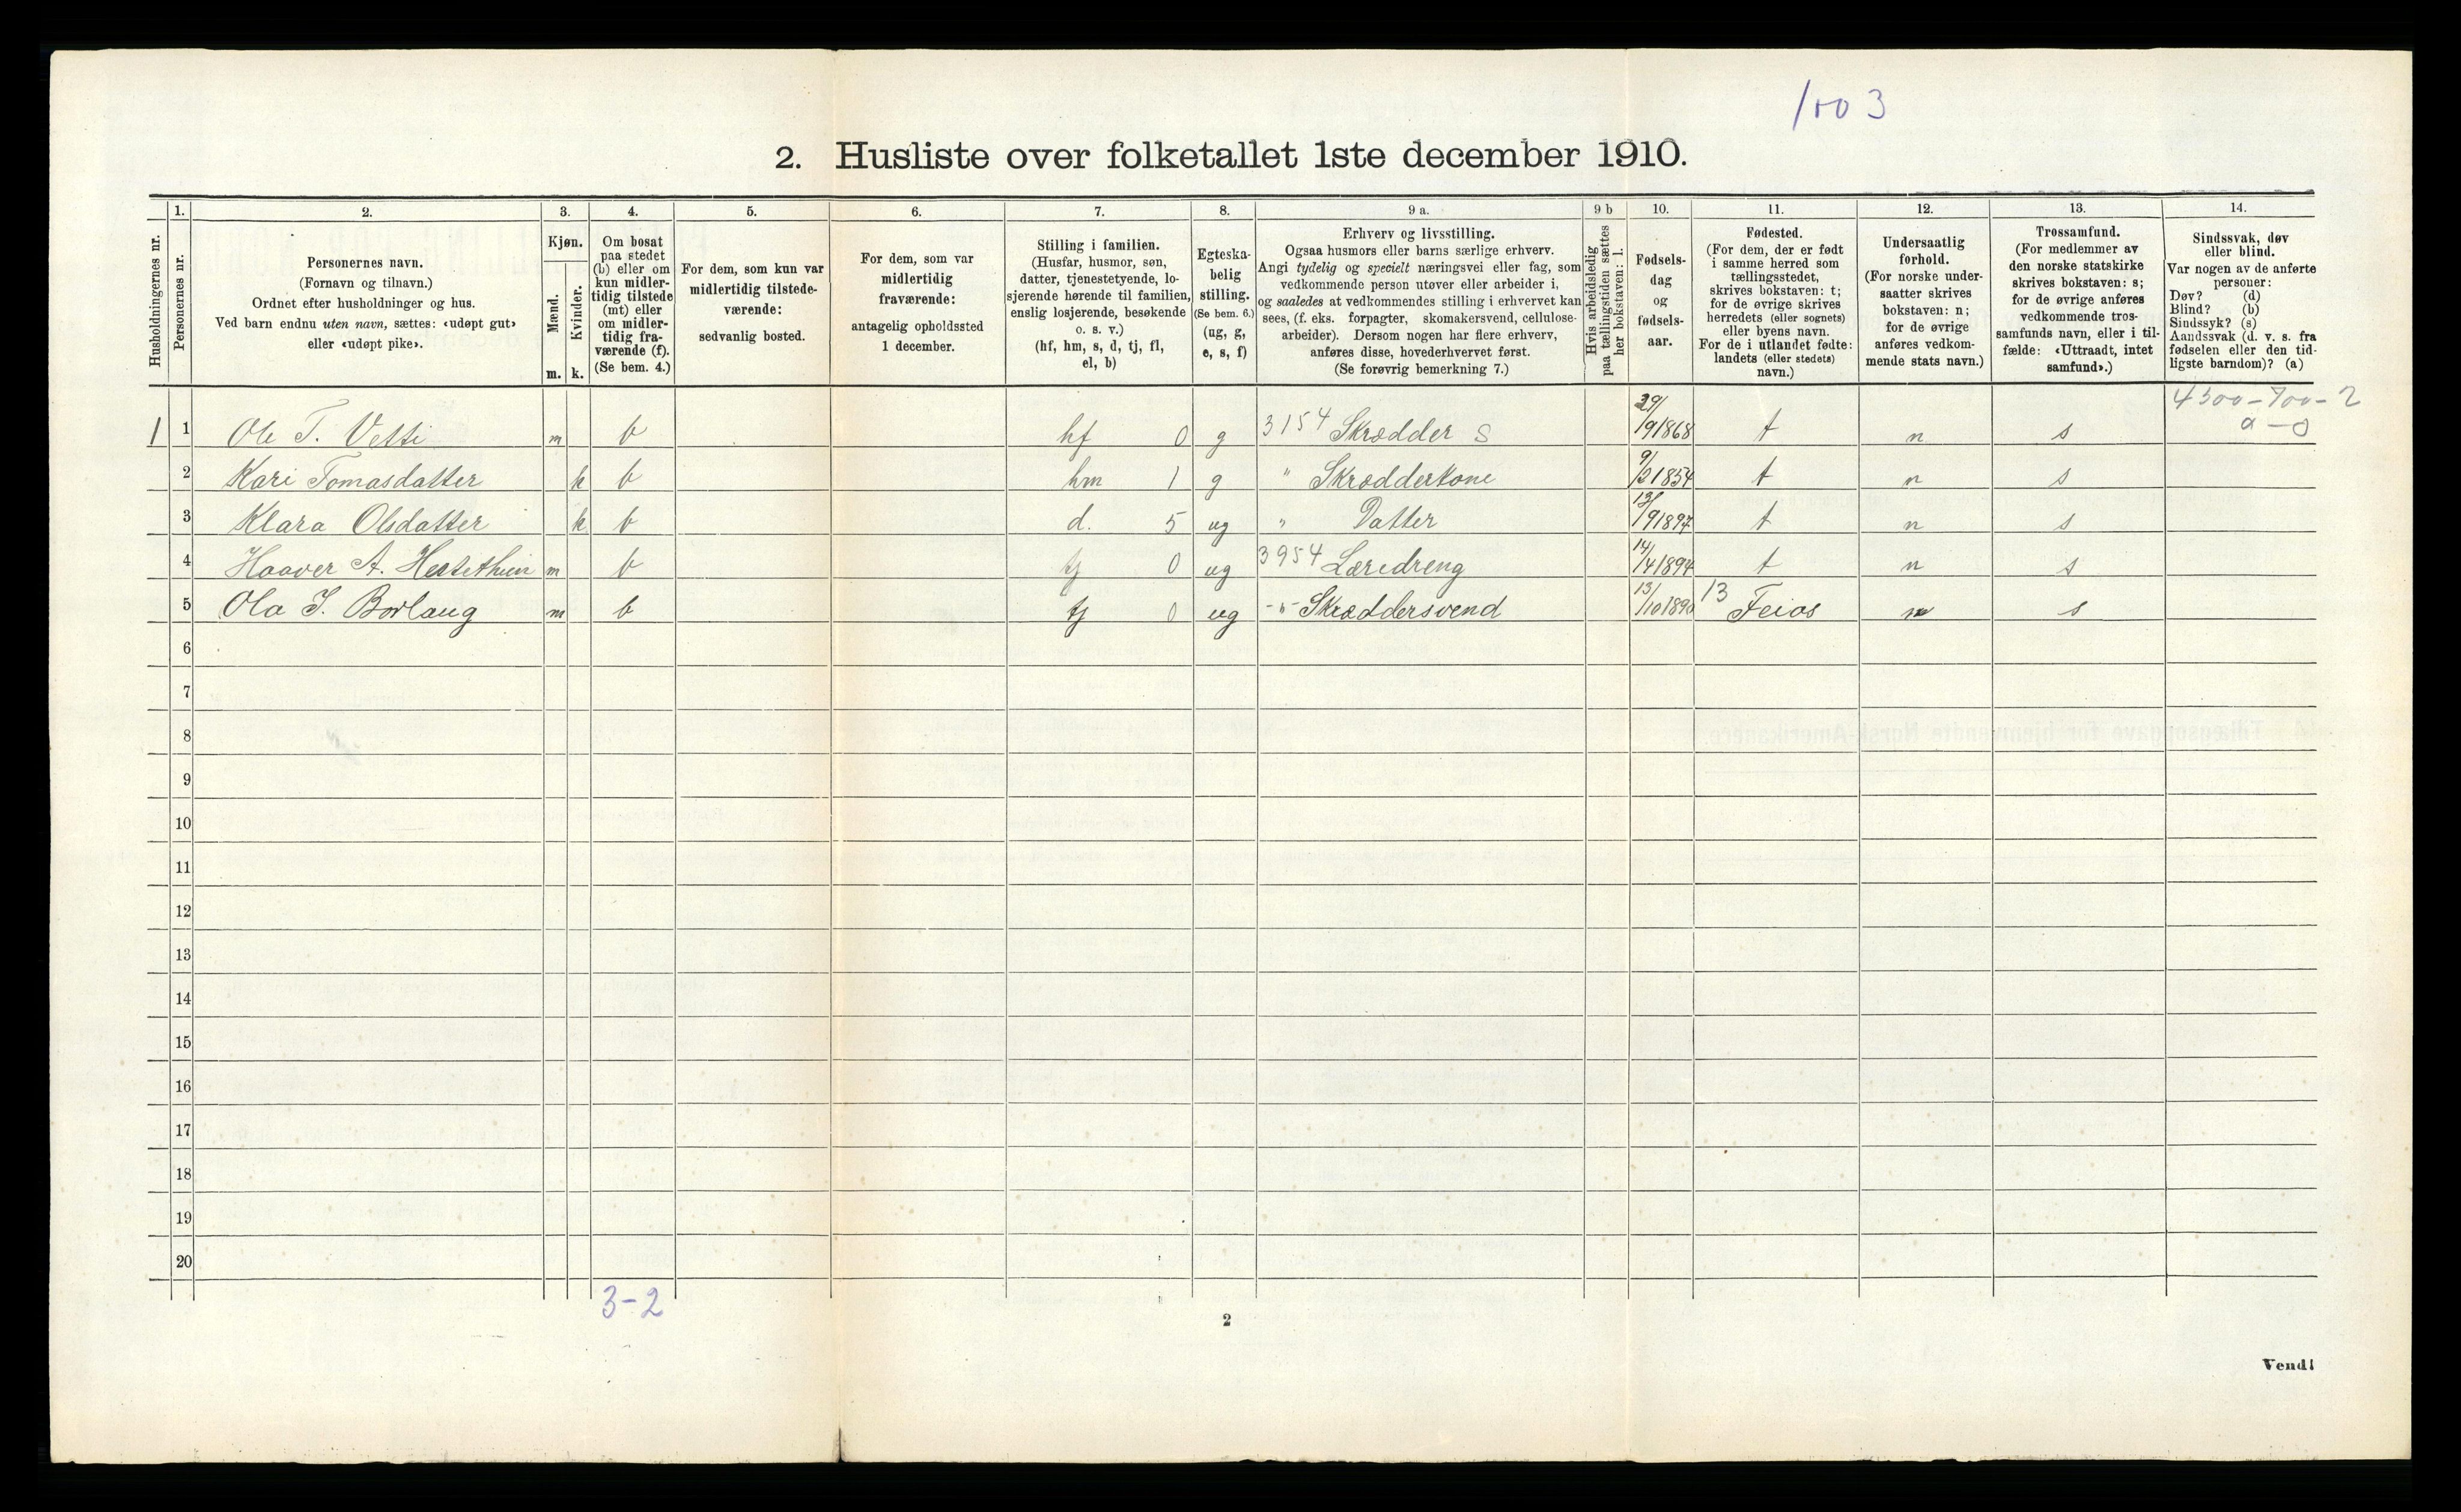 1003
2. Husliste over folketallet 1ste december 1910.
Husholdningernes nr.
1.
Personernes nr.
2.
Personernes navn.
(Fornavn og tilnavn.)
Ordnet efter husholdninger og hus.
Ved barn endnu uten navn, sættes: «udøpt gut»
eller «udøpt pike».
3.
Kjøn.
Mænd.
Kvinder.
m. k.
4.
Om bosat
paa stedet
(b) eller om
kun midler-
tidig tilstede
(mt) eller
om midler-
tidig fra-
værende (f).
(Se bem. 4.)
5.
For dem, som kun var
midlertidig tilstede-
værende:
sedvanlig bosted.
6.
For dem, som var
midlertidig
fraværende:
antagelig opholdssted
1 december.
7.
Stilling i familien.
(Husfar, husmor, søn,
datter, tjenestetyende, lo-
sjerende hørende til familien,
enslig losjerende, besøkende
o. s. v.)
(hf, hm, s, d, tj, fl,
el, b)
8.
Egteska-
belig
stilling.
(Se bem. 6.)
(ug, g,
e, s, f)
9 a.
Erhverv og livsstilling.
Ogsaa husmors eller barns særlige erhverv.
Angi tydelig og specielt næringsvei eller fag, som
vedkommende person utøver eller arbeider i,
og saaledes at vedkommendes stilling i erhvervet kan
sees, (f. eks. forpagter, skomakersvend, cellulose-
arbeider). Dersom nogen har flere erhverv,
anføres disse, hovederhvervet først.
(Se forøvrig bemerkning 7.)
9 b
Hvis arbeidsledig
paa tællingstiden sættes
her bokstaven: l.
10.
Fødsels-
dag
og
fødsels-
aar.
11.
Fødested.
(For dem, der er født
i samme herred som
tællingsstedet,
skrives bokstaven: t;
for de øvrige skrives
herredets (eller sognets)
eller byens navn.
For de i utlandet fødte:
landets (eller stedets)
navn.)
12.
Undersaatlig
forhold.
(For norske under-
saatter skrives
bokstaven: n;
for de øvrige
anføres vedkom-
mende stats navn.)
13.
Trossamfund.
(For medlemmer av
den norske statskirke
skrives bokstaven: s;
for de øvrige anføres
vedkommende tros-
samfunds navn, eller i til-
fælde: «Uttraadt, intet
samfund».)
14.
Sindssvak, døv
eller blind.
Var nogen av de anførte
personer:
Døv? (d)
Blind? (b)
Sindssyk? (s)
Aandssvak (d. v. s. fra
fødselen eller den tid-
ligste barndom)? (a)
4300-700-2
a - 0
1 1 Ole T. Vetti m b hf 0 g 3154 Skrædder S 29/9 1868 t n s
2 Kari Tomasdatter k b hm 1 g " Skrædderkone 9/2 1854 t n s
3 Klara Olsdatter k b d. 5 ug " Datter 13/9 1897 t n s
4 Haaver A. Hestethun m b tj 0 ug 3954 Læredreng 14/4 1894 t n s
5 Ola I. Borlaug m b tj 0 ug -"- Skræddersvend 13/10 1890 13 Feios n s
6
7
8
9
10
11
12
13
14
15
16
17
18
19
20
3-2
2
Vend!